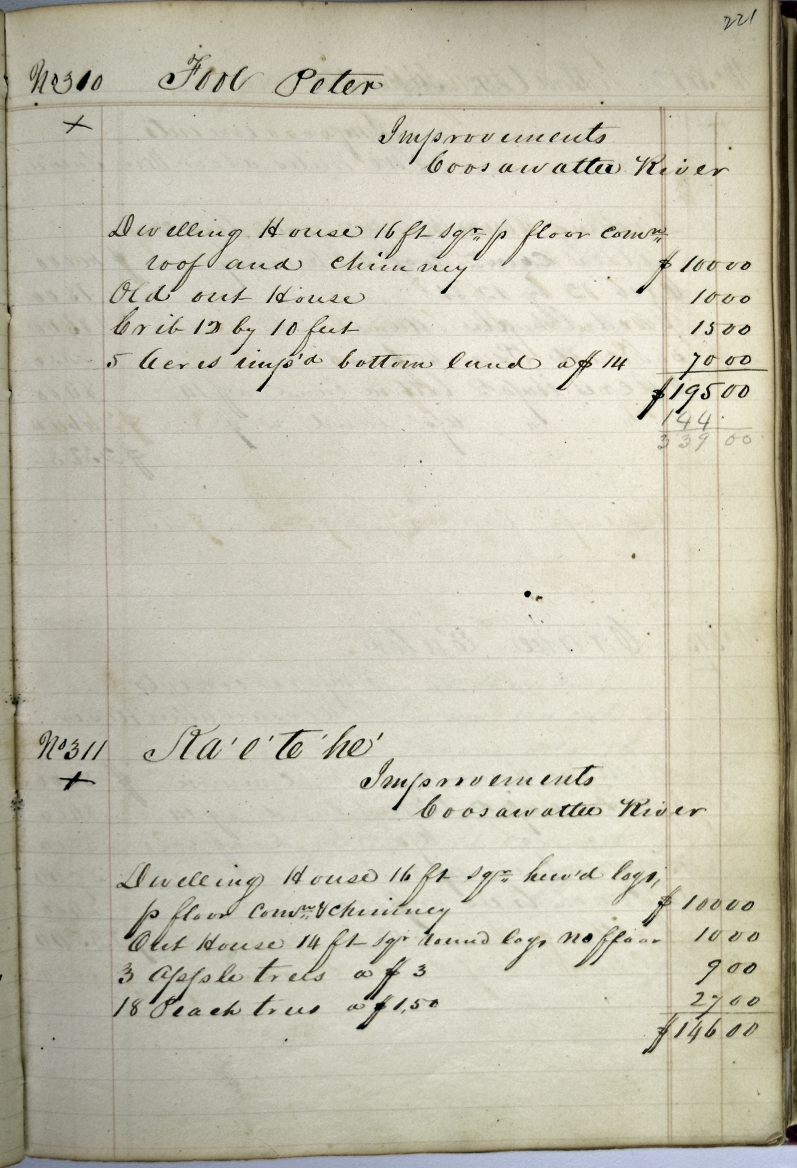 221
No 310 Fool Peter
Improvements
Coosawattee River
Dwelling House 16 ft sqr p floor comn
roof and chimney $ 100 00
Old out House 10 00
Crib 12 by 10 feet 15 00
5 Acres imp'd bottom land a $ 14 70 00
$ 195 00
144
339 00
No 311 Ka' e' te' he'
Improvements
Coosawattee River
Dwelling House 16 ft sqr hew'd logs,
p floor comn & chimney $ 100 00
Out House 14 ft sqr round logs no floor 10 00
3 Apple trees a $ 3 9 00
18 Peach trees a $ 1,50 27 00
$ 146 00